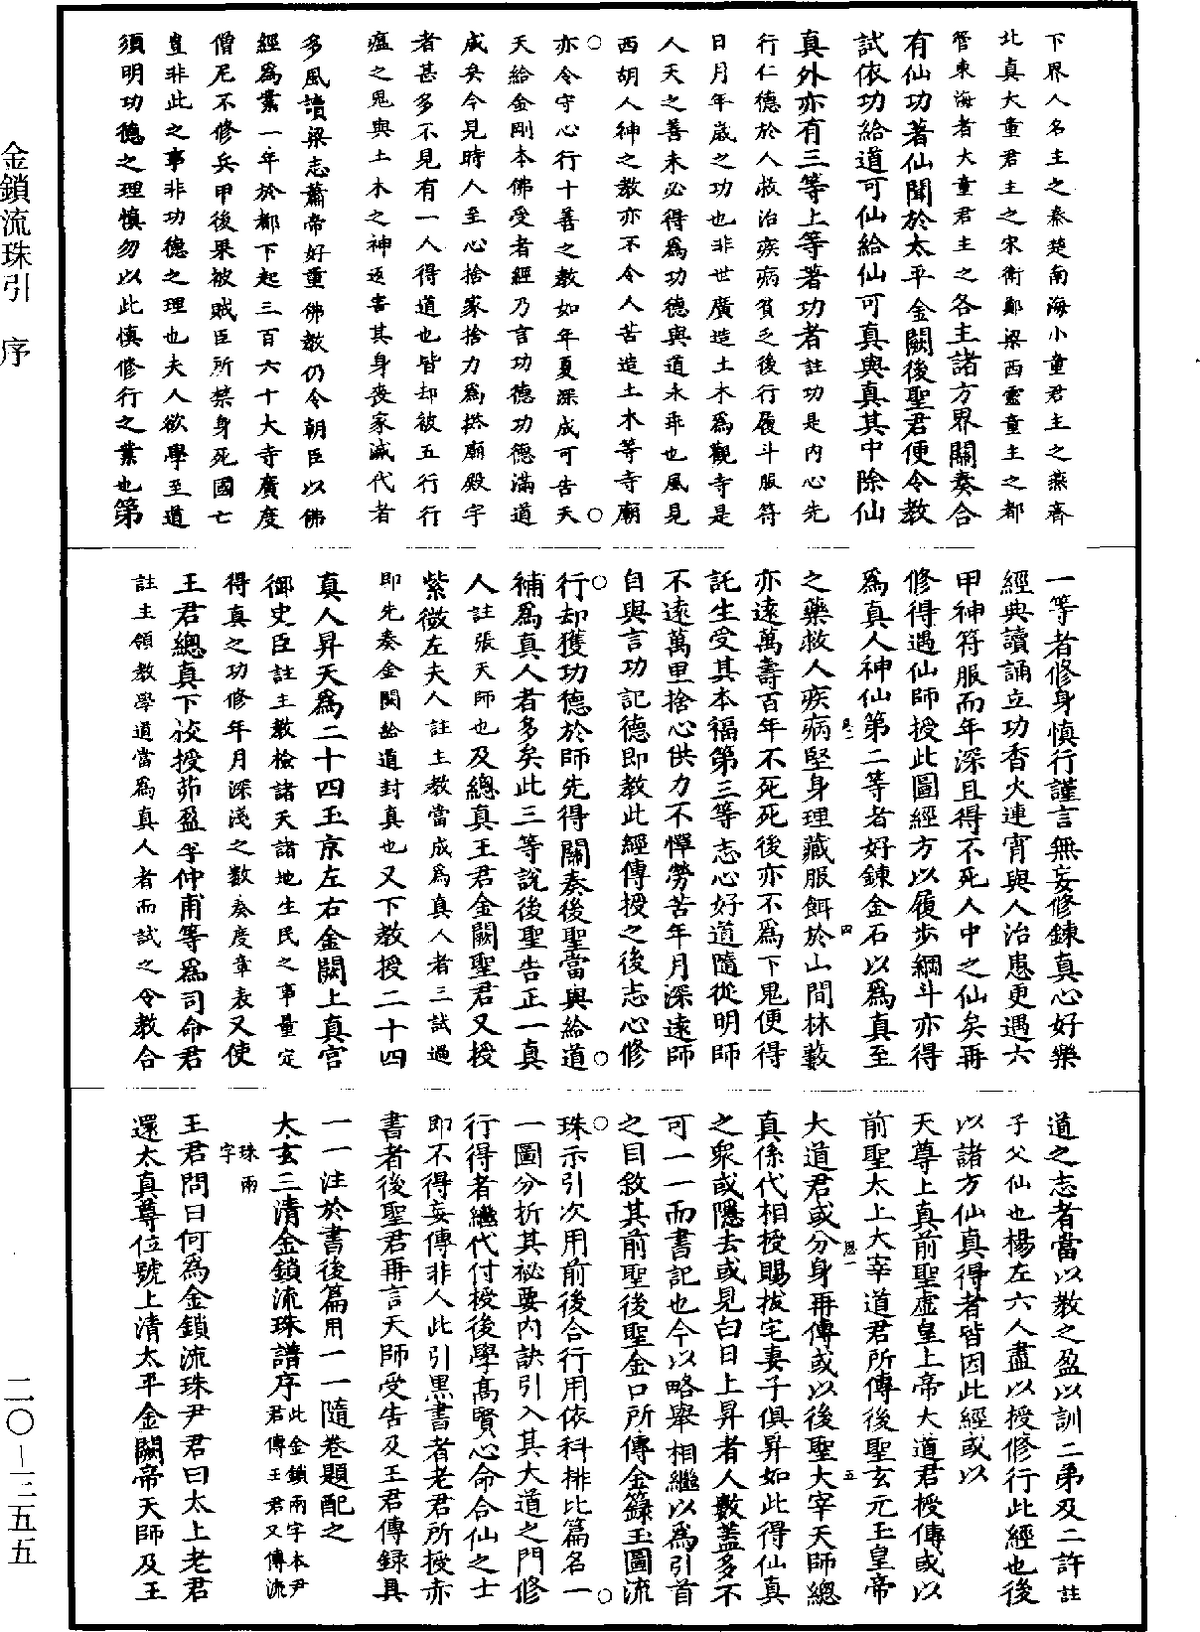 下界人名主之秦楚南海小童君主之燕齊
北真大童君主之宋衛鄭梁西靈童主之都
管東海者大童君主之各主諸方界關奏合
有仙功著仙聞於太平金闕後聖君便令教
試依功給道可仙給仙可真與真其中除仙
真外亦有三等上等著功者註功是内心先
行仁德於人救治疾病貧乏後行履斗服符
日月年歲之功也非世廣造土木為觀寺是
人天之善未必得為功德與道永乖也風見
西胡人神之教亦不令人苦造土木等寺廟
亦令守心行十善之教如年夏深成可告天
天給金剛本佛受者經乃言功德功德滿道
成矣今見時人至心捨家捨力為搽廟殿宇
者甚多不見有一人得道也皆却被五行行
瘟之鬼與土木之神返害其身喪家滅代者
多風讀梁志蕭帝好重佛教仍令朝臣以佛
經為業一年於都下起三百六十大寺廣度
僧尼不修兵甲後果被賊臣所禁身死國亡
豈非此之事非功德之理也夫人欲學至道
須明功德之理慎勿以此慎修行之業也第
一等者修身慎行謹言無妄修鍊真心好樂
經典讀誦立功香火連宵與人治患更遇六
甲神符服而年深且得不死人中之仙矣再
修得遇仙師授此圖經方以履步綱斗亦得
為真人神仙第二等者好鍊金石以為真至
之藥救人疾病堅身理藏服餌於山間林藪
亦遠萬壽百年不死死後亦不為下鬼便得
託生受其本福第三等志心好道隨從明師
不遠萬里捨心供力不憚勞苦年月深遠師
自與言功記德即教此經傳授之後志心修
行却獲功德於師先得關奏後聖當與給道
補為真人者多矣此三等說後聖告正一真
人註張天師也及總真王君金闕聖君又授
紫微左夫人註主教當成為真人者三試過
即先奏金闕給道封真也又下教授二十四
真人昇天為二十四玉京左右金闕上真宮
御史臣註主教檢諸天諸地生民之事量定
得真之功修年月深淺之數奏度章表又使
王君總真下筊授茆盈季仲甫等為司命君
註主領教學道當為真人者而試之令教合
道之志者當以教之盈以訓二弟及二許註
子父仙也楊左六人盡以授修行此經也後
以諸方仙真得者皆因此經或以
天尊上真前聖虛皇上帝大道君授傳或以
前聖太上大宰道君所傳後聖玄元玉皇帝
大道君或分身再傳或以後聖大宰天師總
真係代相授賜拔宅妻子俱昇如此得仙真
之眾或隱去或見白日上昇者人數蓋多不
可一一而書記也今以略舉相繼以為引首
之目敘其前聖後聖金口所傳金籙玉圖流
珠示引次用前後合行用依科排比篇名一
一圖分折其祕要内訣引入其大道之門修
行得者繼代付授後學高賢心命合仙之士
即不得妄傳非人此引黑書者老君所授亦
書者後聖君再言天師受告及王君傳録具
一一注於書後篇用一一隨卷題配之
大玄三清金鎖流珠譜序此金鎖兩字本尹君傳王君又傳流
珠兩字
王君問曰何為金鎖流珠尹君曰太上老君
還太真尊位號上清太平金闕帝天師及王
金鎖流珠引　序
二〇—三五五